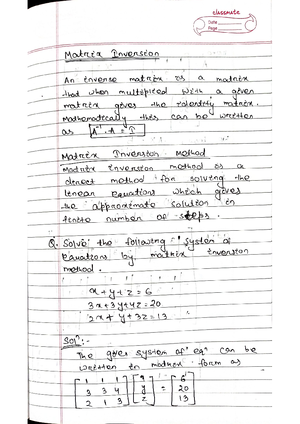 classmate
Date
Page
Matrix Inversion
An inverse matrix is a matrix
that when multiplied with a given
matrix gives the identity matrix.
Mathematically this can be written
as A⁻¹. A = I
Matrix Inversion Method
Matrix inversion method is a
direct method for solving the
linear equations which gives
the approximate solution in
finite number of steps.
Q. Solve the following system of
equations by matrix inversion
method.
x + y + z = 6
3x + 3y + 4z = 20
2x + y + 3z = 13
Solⁿ:-
The given system of eqⁿ can be
written in matrix form as
[1 1 1] [x] = [6]
[3 3 4] [y] = [20]
[2 1 3] [z] = [13]